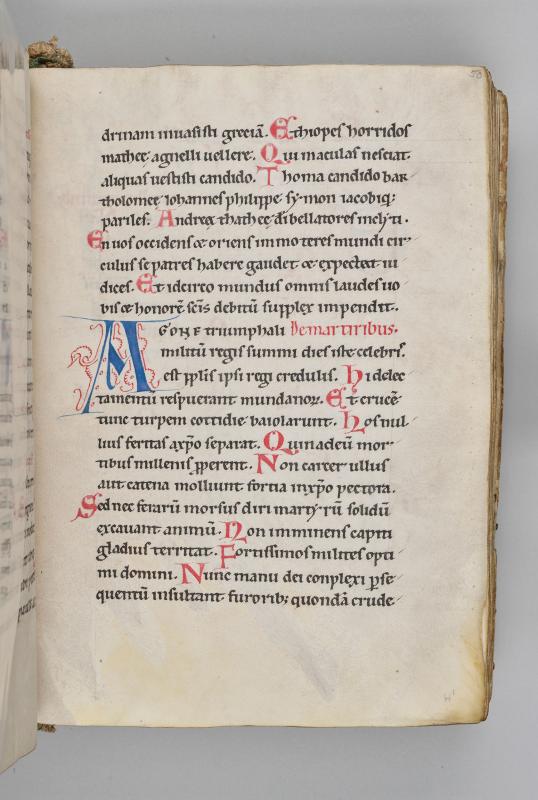 58
drinam inuasisti greciã. Ethiopes horridos
mathee agnelli uellere. Qui maculas nesciat.
aliquas uestisti candido. Thoma candido bar
tholomee iohannes philippe symon iacobiq;
pariles. Andrea thathee di bellatores inclyti.
En uos occidens & oriens immo teres mundi cir
culus se patres habere gaudet & expectat iu
dices. Et idcirco mundus omnis laudes uo
bis & honorẽ scis debitũ supplex impendit.
AGONE triumphali De martiribus.
militũ regis summi dies iste celebris
est pplis ipsi regi credulis. Hi delec
tamentũ respuerant mundanoꝝ. Et crucẽ
tunc turpem cottidie baiolarunt. Hos nul
lius feritas a xpo separat. Quin ad eũ mor
tibus millenis pperent. Non carcer ullus
aut catena molliunt fortia in xpo pectora.
Sed nec ferarũ morsus diri martyrũ solidũ
excauant animũ. Non imminens capiti
gladius territat. Fortissimos milites opti
mi domini. Nunc manu dei conplexi pse
quentũ insultant furorib; quondã crude